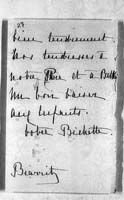 23
bien tendrement
nos tendresses à
notre et à
Un bon baiser
aux enfants.
votre Bichette
Biarritz